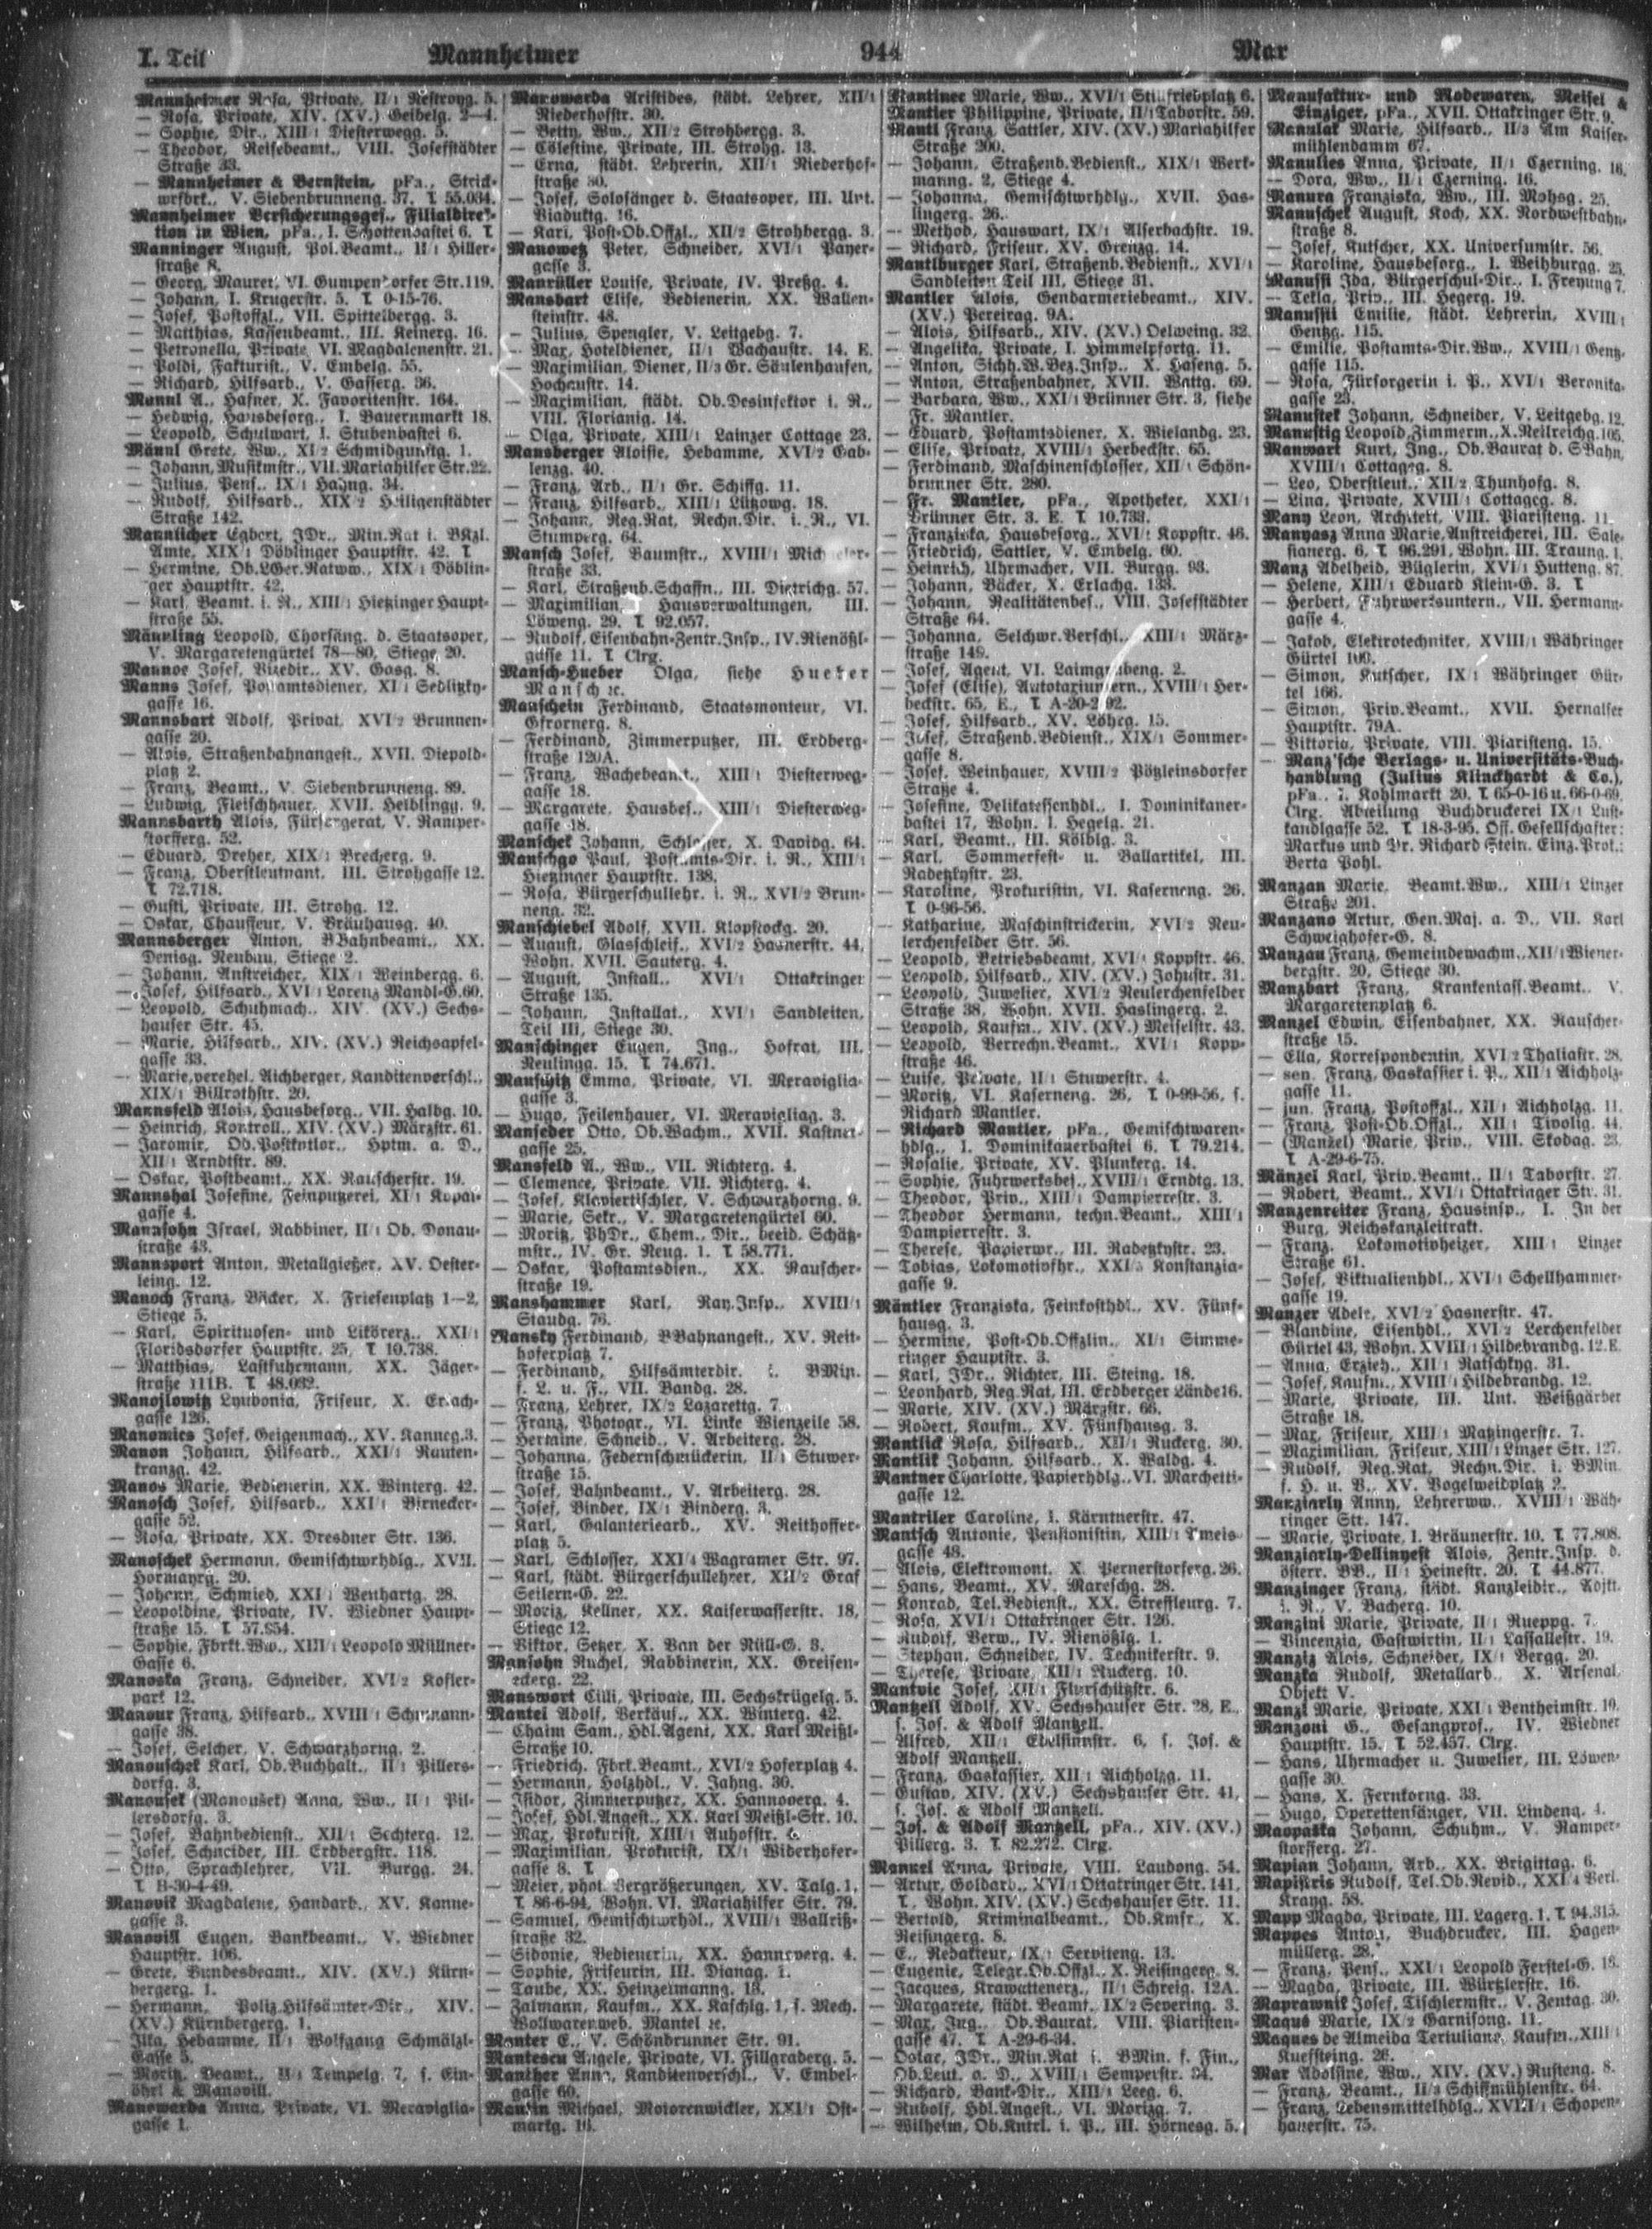 I. Teil Mannheimer 944 Mar
Mannheimer Rosa, Private, II/1 Nestroyg. 5.
— Rosa, Private, XIV. (XV.) Geibelg. 2—4.
— Sophie, Dir., XIII/1 Diesterwegg. 5.
— Theodor, Reisebeamt., VIII. Josefstädter
Straße 33.
— Mannheimer & Bernstein, pFa., Strick-
wrfbrk., V. Siebenbrunneng. 37. T 55.034.
Mannheimer Versicherungsges., Filialdirek-
tion in Wien, pFa., I. Schottenbastei 6. T
Manninger August, Pol.Beamt., II/1 Hiller-
straße 8.
— Georg, Maurer, VI. Gumpendorfer Str. 119.
— Johann, I. Krugerstr. 5. T 0-15-76.
— Josef, Postoffzl., VII. Spittelbergg. 3.
— Matthias, Kassenbeamt., III. Keinerg. 16.
— Petronella, Private, VI. Magdalenenstr. 21.
— Poldi, Fakturist., V. Embelg. 55.
— Richard, Hilfsarb., V. Gasserg. 36.
Mannl A., Hafner, X. Favoritenstr. 164.
— Hedwig, Hausbesorg., I. Bauernmarkt 18.
— Leopold, Schulwart, I. Stubenbastei 6.
Männl Grete, Ww., XI/2 Schmidgunstg. 1.
— Johann, Musikmstr., VII. Mariahilfer Str. 22.
— Julius, Pens., IX/1 Hahng. 34.
— Rudolf, Hilfsarb., XIX/2 Heiligenstädter
Straße 142.
Mannlicher Egbert, JDr., Min.Rat i. BKzl.
Amte, XIX/1 Döblinger Hauptstr. 42. T
— Hermine, Ob.LGer.Ratww., XIX/1 Döblin-
ger Hauptstr. 42.
— Karl, Beamt. i. R., XIII/1 Hietzinger Haupt-
straße 55.
Männling Leopold, Chorsäng. d. Staatsoper,
V. Margaretengürtel 78—80, Stiege 20.
Mannoe Josef, Vizedir., XV. Gasg. 8.
Manns Josef, Postamtsdiener, XI/1 Sedlitzky-
gasse 16.
Mannsbart Adolf, Privat, XVI/2 Brunnen-
gasse 20.
— Alois, Straßenbahnangest., XVII. Diepold-
platz 2.
— Franz, Beamt., V. Siebenbrunneng. 89.
— Ludwig, Fleischhauer, XVII. Heiblingg. 9.
Mannsbarth Alois, Fürsorgerat, V. Ramper-
storfferg. 52.
— Eduard, Dreher, XIX/1 Brecherg. 9.
— Franz, Oberstleutnant, III. Strohgasse 12.
T 72.718.
— Gusti, Private, III. Strohg. 12.
— Oskar, Chauffeur, V. Bräuhausg. 40.
Mannsberger Anton, BBahnbeamt., XX.
Denisg. Neubau, Stiege 2.
— Johann, Anstreicher, XIX/1 Weinbergg. 6.
— Josef, Hilfsarb., XVI/1 Lorenz Mandl-G. 60.
— Leopold, Schuhmach., XIV. (XV.) Sechs-
hauser Str. 45.
— Marie, Hilfsarb., XIV. (XV.) Reichsapfel-
gasse 33.
— Marie, verehel. Aichberger, Kanditenverschl.,
XIX/1 Billrothstr. 20.
Mannsfeld Alois, Hausbesorg., VII. Halbg. 10.
— Heinrich, Kontroll., XIV. (XV.) Märzstr. 61.
— Jaromir, Ob.Postkntlor., Hptm. a. D.,
XII/1 Arndtstr. 89.
— Oskar, Postbeamt., XX. Rauscherstr. 19.
Mannshal Josefine, Feinputzerei, XI/1 Kopal-
gasse 4.
Mannsohn Israel, Rabbiner, II/1 Ob. Donau-
straße 43.
Mannsport Anton, Metallgießer, XV. Oester-
leing. 12.
Manoch Franz, Bäcker, X. Friesenplatz 1—2,
Stiege 5.
— Karl, Spirituosen- und Likörerz., XXI/1
Floridsdorfer Hauptstr. 25, T 10.738.
— Matthias, Lastfuhrmann, XX. Jäger-
straße 111B. T 48.032.
Manojlowitz Ljubonia, Friseur, X. Erlach-
gasse 126.
Manomics Josef, Geigenmach., XV. Kanneg. 3.
Manon Johann, Hilfsarb., XXI/1 Rauten-
kranzg. 42.
Manos Marie, Bedienerin, XX. Winterg. 42.
Manosch Josef, Hilfsarb., XXI/1 Birnecker-
gasse 52.
— Rosa, Private, XX. Dresdner Str. 136.
Manoschek Hermann, Gemischtwrhdlg., XVII.
Hormayrg. 20.
— Johann, Schmied, XXI/1 Wenhartg. 28.
— Leopoldine, Private, IV. Wiedner Haupt-
straße 15. T 57.854.
— Sophie, Fbrkt.Ww., XIII/1 Leopold Müllner-
Gasse 6.
Manoska Franz, Schneider, XVI/2 Kofler-
park 12.
Manour Franz, Hilfsarb., XVIII/1 Schumann-
gasse 38.
— Josef, Selcher, V. Schwarzhorng. 2.
Manouschek Karl, Ob.Buchhalt., II/1 Pillers-
dorfg. 3.
Manousek (Manoušek) Anna, Ww., II/1 Pil-
lersdorfg. 3.
— Josef, Bahnbedienst., XII/1 Sechterg. 12.
— Josef, Schneider, III. Erdbergstr. 118.
— Otto, Sprachlehrer, VII. Burgg. 24.
T B-30-4-49.
Manovik Magdalene, Handarb., XV. Kanne-
gasse 3.
Manovill Eugen, Bankbeamt., V. Wiedner
Hauptstr. 106.
— Grete, Bundesbeamt., XIV. (XV.) Kürn-
bergerg. 1.
— Hermann, Poliz.Hilfsämter-Dir., XIV.
(XV.) Kürnbergerg. 1.
— Ilka, Hebamme, II/1 Wolfgang Schmälzl-
Gasse 5.
— Moritz, Beamt., II/1 Tempelg. 7, s. Ein-
öhrl & Manovill.
Manowarda Anna, Private, VI. Meraviglia-
gasse 1.
Manowarda Aristides, städt. Lehrer, XII/1
Niederhofstr. 30.
— Betty, Ww., XII/2 Strohbergg. 3.
— Cölestine, Private, III. Strohg. 13.
— Erna, städt. Lehrerin, XII/1 Niederhof-
straße 30.
— Josef, Solosänger d. Staatsoper, III. Unt.
Viaduktg. 16.
— Karl, Post-Ob.Offzl., XII/2 Strohbergg. 3.
Manowetz Peter, Schneider, XVI/1 Payer-
gasse 3.
Manrüller Louise, Private, IV. Preßg. 4.
Mansbart Elise, Bedienerin, XX. Wallen-
steinstr. 48.
— Julius, Spengler, V. Leitgebg. 7.
— Max, Hoteldiener, II/1 Wachaustr. 14. E.
— Maximilian, Diener, II/3 Gr. Säulenhaufen,
Hochaustr. 14.
— Maximilian, städt. Ob.Desinfektor i. R.,
VIII. Florianig. 14.
— Olga, Private, XIII/1 Lainzer Cottage 23.
Mansberger Aloisie, Hebamme, XVI/2 Gab-
lenzg. 40.
— Franz, Arb., II/1 Gr. Schiffg. 11.
— Franz, Hilfsarb., XIII/1 Lützowg. 18.
— Johann, Reg.Rat, Rechn.Dir. i. R., VI.
Stumperg. 64.
Mansch Josef, Baumstr., XVIII/1 Michaeler-
straße 33.
— Karl, Straßenb.Schaffn., III. Dietrichg. 57.
— Maximilian, Hausverwaltungen, III.
Löweng. 29. T 92.057.
— Rudolf, Eisenbahn-Zentr.Insp., IV. Rienößl-
gasse 11. T Clrg.
Mansch-Hueber Olga, siehe Hueber
Mansch ꝛc.
Manschein Ferdinand, Staatsmonteur, VI.
Gfrornerg. 8.
— Ferdinand, Zimmerputzer, III. Erdberg-
straße 120A.
— Franz, Wachebeamt., XIII/1 Diesterweg-
gasse 18.
— Margarete, Hausbes., XIII/1 Diesterweg-
gasse 18.
Manschek Johann, Schlosser, X. Davidg. 64.
Manschgo Paul, Postamts-Dir. i. R., XIII/1
Hietzinger Hauptstr. 138.
— Rosa, Bürgerschullehr. i. R., XVI/2 Brun-
neng. 32.
Manschiebel Adolf, XVII. Klopstockg. 20.
— August, Glasschleif., XVI/2 Hasnerstr. 44,
Wohn. XVII. Sauterg. 4.
— August, Install., XVI/1 Ottakringer
Straße 135.
— Johann, Installat., XVI/1 Sandleiten,
Teil III, Stiege 30.
Manschinger Eugen, Ing., Hofrat, III.
Reulingg. 15. T 74.671.
Manschitz Emma, Private, VI. Meraviglia-
gasse 3.
— Hugo, Feilenhauer, VI. Meravigliag. 3.
Manseder Otto, Ob.Wachm., XVII. Kastner-
gasse 25.
Mansfeld A., Ww., VII. Richterg. 4.
— Clemence, Private, VII. Richterg. 4.
— Josef, Klaviertischler, V. Schwarzhorng. 9.
— Marie, Sekr., V. Margaretengürtel 60.
— Moritz, PhDr., Chem., Dir., beeid. Schätz-
mstr., IV. Gr. Neug. 1. T 58.771.
— Oskar, Postamtsdien., XX. Rauscher-
straße 19.
Manshammer Karl, Ray.Insp., XVIII/1
Staudg. 76.
Mansky Ferdinand, BBahnangest., XV. Reit-
hoferplatz 7.
— Ferdinand, Hilfsämterdir. i. BMin.
f. L. u. F., VII. Bandg. 28.
— Franz, Lehrer, IX/2 Lazarettg. 7.
— Franz, Photogr., VI. Linke Wienzeile 58.
— Hermine, Schneid., V. Arbeiterg. 28.
— Johanna, Federnschmückerin, II/1 Stuwer-
straße 15.
— Josef, Bahnbeamt., V. Arbeiterg. 28.
— Josef, Binder, IX/1 Binderg. 3.
— Karl, Galanteriearb., XV. Reithoffer-
platz 5.
— Karl, Schlosser, XXI/4 Wagramer Str. 97.
— Karl, städt. Bürgerschullehrer, XII/2 Graf
Seilern-G. 22.
— Moriz, Kellner, XX. Kaiserwasserstr. 18,
Stiege 12.
— Viktor, Setzer, X. Van der Nüll-G. 3.
Mansohn Ruchel, Rabbinerin, XX. Greisen-
eckerg. 22.
Manswort Cilli, Private, III. Sechskrügelg. 5.
Mantel Adolf, Verkäuf., XX. Winterg. 42.
— Chaim Sam., Hdl.Agent, XX. Karl Meißl-
Straße 10.
— Friedrich, Fbrk.Beamt., XVI/2 Hoferplatz 4.
— Hermann, Holzhdl., V. Jahng. 36.
— Isidor, Zimmerputzer, XX. Hannoverg. 4.
— Josef, Hdl.Angest., XX. Karl Meißl-Str. 10.
— Max, Prokurist, XIII/1 Auhofstr.
— Maximilian, Prokurist, IX/1 Widerhofer-
gasse 8. T
— Meier, phot. Vergrößerungen, XV. Talg. 1,
T 86-6-94, Wohn. VI. Mariahilfer Str. 79.
— Samuel, Gemischtwrhdl., XVIII/1 Wallriß-
straße 32.
— Sidonie, Bedienerin, XX. Hannoverg. 4.
— Sophie, Friseurin, III. Dianag. 1.
— Taube, XX. Heinzelmanng. 13.
— Zalmann, Kaufm., XX. Kaschlg. 1, s. Mech.
Wollwarenweb. Mantel ꝛc.
Manter E., V. Schönbrunner Str. 91.
Mantescu Angele, Private, VI. Fillgraderg. 5.
Manther Anna, Kanditenverschl., V. Embel-
gasse 60.
Michael, Motorenwickler, XXI/1 Ost-
martg.
Mantinec Marie, Ww., XVI/1 Stillfriedplatz 6.
Mantler Philippine, Private, II/1 Taborstr. 59.
Mantl Franz, Sattler, XIV. (XV.) Mariahilfer
Straße 200.
— Johann, Straßenb.Bedienst., XIX/1 Werk-
manng. 2, Stiege 4.
— Johanna, Gemischtwrhdlg., XVII. Has-
lingerg. 26.
— Method, Hauswart, IX/1 Alserbachstr. 19.
— Richard, Friseur, XV. Grenzg. 14.
Mantlburger Karl, Straßenb.Bedienst., XVI/1
Sandleiten Teil III, Stiege 31.
Mantler Alois, Gendarmeriebeamt., XIV.
(XV.) Pereirag. 9A.
— Alois, Hilfsarb., XIV. (XV.) Oelweing. 32.
— Angelika, Private, I. Himmelpfortg. 11.
— Anton, Sichh.W.Bez.Insp., X. Haseng. 5.
— Anton, Straßenbahner, XVII. Wattg. 69.
— Barbara, Ww., XXI/1 Brünner Str. 3, siehe
Fr. Mantler.
— Eduard, Postamtsdiener, X. Wielandg. 23.
— Elise, Private, XVIII/1 Herbeckstr. 65.
— Ferdinand, Maschinenschlosser, XII/1 Schön-
brunner Str. 280.
— Fr. Mantler, pFa., Apotheker, XXI/1
Brünner Str. 3. E. T 10.733.
— Franziska, Hausbesorg., XVI/1 Koppstr. 46.
— Friedrich, Sattler, V. Embelg. 60.
— Heinrich, Uhrmacher, VII. Burgg. 93.
— Johann, Bäcker, X. Erlachg. 133.
— Johann, Realitätenbes., VIII. Josefstädter
Straße 64.
— Johanna, Selchwr.Verschl., XIII/1 März-
straße 149.
— Josef, Agent, VI. Laimgrubeng. 2.
— Josef (Elise), Autotaxiuntern., XVIII/1 Her-
beckstr. 65, E., T A-20-2-92.
— Josef, Hilfsarb., XV. Löhrg. 15.
— Josef, Straßenb.Bedienst., XIX/1 Sommer-
gasse 8.
— Josef, Weinhauer, XVIII/2 Pötzleinsdorfer
Straße 4.
— Josefine, Delikatessenhdl., I. Dominikaner-
bastei 17, Wohn. I. Hegelg. 21.
— Karl, Beamt., III. Kölblg. 3.
— Karl, Sommerfest- u. Ballartikel, III.
Radetzkystr. 23.
— Karoline, Prokuristin, VI. Kaserneng. 26.
T 0-96-56.
— Katharine, Maschinstrickerin, XVI/2 Neu-
lerchenfelder Str. 56.
— Leopold, Betriebsbeamt, XVI/1 Koppstr. 46.
— Leopold, Hilfsarb., XIV. (XV.) Johnstr. 31.
— Leopold, Juwelier, XVI/2 Neulerchenfelder
Straße 38, Wohn. XVII. Haslingerg. 2.
— Leopold, Kaufm., XIV. (XV.) Meiselstr. 43.
— Leopold, Verrechn.Beamt., XVI/1 Kopp-
straße 46.
— Luise, Private, II/1 Stuwerstr. 4.
— Moritz, VI. Kaserneng. 26, T 0-99-56, s.
Richard Mantler.
— Richard Mantler, pFa., Gemischtwaren-
hdlg., I. Dominikanerbastei 6. T 79.214.
— Rosalie, Private, XV. Plunkerg. 14.
— Sophie, Fuhrwerksbes., XVIII/1 Erndtg. 13.
— Theodor, Priv., XIII/1 Dampierrestr. 3.
— Theodor Hermann, techn.Beamt., XIII/1
Dampierrestr. 3.
— Therese, Papierwr., III. Radetzkystr. 23.
— Tobias, Lokomotivfhr., XXI/5 Konstanzia-
gasse 9.
Mäntler Franziska, Feinkosthdl., XV. Fünf-
hausg. 3.
— Hermine, Post-Ob.Offzlin., XI/1 Simme-
ringer Hauptstr. 3.
— Karl, JDr., Richter, III. Steing. 18.
— Leonhard, Reg.Rat, III. Erdberger Lände 16.
— Marie, XIV. (XV.) Märzstr. 66.
— Robert, Kaufm., XV. Fünfhausg. 3.
Mantlick Rosa, Hilfsarb., XII/1 Ruckerg. 30.
Mantlik Johann, Hilfsarb., X. Waldg. 4.
Mantner Charlotte, Papierhdlg., VI. Marchetti-
gasse 12.
Mantriler Caroline, I. Kärntnerstr. 47.
Mantsch Antonie, Pensionistin, XIII/1 Ameis-
gasse 48.
— Alois, Elektromont. X. Pernerstorferg. 26.
— Hans, Beamt., XV. Mareschg. 28.
— Konrad, Tel.Bedienst., XX. Streffleurg. 7.
— Rosa, XVI/1 Ottakringer Str. 126.
— Rudolf, Verw., IV. Rienößlg. 1.
— Stephan, Schneider, IV. Technikerstr. 9.
— Therese, Private, XII/1 Ruckerg. 10.
Mantvic Josef, XII/1 Flurschützstr. 6.
Mantzell Adolf, XV. Sechshauser Str. 28, E.,
s. Jos. & Adolf Mantzell.
— Alfred, XII/1 Edelsinnstr. 6, s. Jos. &
Adolf Mantzell.
— Franz, Gaskassier, XII/1 Aichholzg. 11.
— Gustav, XIV. (XV.) Sechshauser Str. 41,
s. Jos. & Adolf Mantzell.
— Jos. & Adolf Mantzell, pFa., XIV. (XV.)
Pillerg. 3. T 82.272. Clrg.
Manuel Anna, Private, VIII. Laudong. 54.
— Artur, Goldarb., XVI/1 Ottakringer Str. 141,
T, Wohn. XIV. (XV.) Sechshauser Str. 11.
— Bertold, Kriminalbeamt., Ob.Kmsr., X.
Reisingerg. 8.
— E., Redakteur, IX/1 Serviteng. 13.
— Eugenie, Telegr.Ob.Offzl., X. Reisingerg. 8.
— Jacques, Krawattenerz., II/1 Schreig. 12A.
— Margarete, städt. Beamt., IX/2 Severing. 3.
— Max, Ing., Ob.Baurat, VIII. Piaristen-
gasse 47. T A-29-6-34.
— Oskar, JDr., Min.Rat i. BMin. f. Fin.,
Ob.Leut. a. D., XVIII/1 Semperstr. 34.
— Richard, Bank-Dir., XIII/1 Leeg. 6.
— Rudolf, Hdl.Angest., VI. Morizg. 7.
— Wilhelm, Ob.Kntrl. i. P., III. Hörnesg. 5.
Manufaktur- und Modewaren, Meisel &
Einziger, pFa., XVII. Ottakringer Str. 9.
Manulak Marie, Hilfsarb., II/3 Am Kaiser-
mühlendamm 67.
Manulies Anna, Private, II/1 Czerning. 16.
— Dora, Ww., II/1 Czerning. 16.
Manura Franziska, Ww., III. Mohsg. 25.
Manuschek August, Koch, XX. Nordwestbahn-
straße 8.
— Josef, Kutscher, XX. Universumstr. 56.
— Karoline, Hausbesorg., I. Weihburgg. 25.
Manussi Ida, Bürgerschul-Dir., I. Freyung 7.
— Tekla, Priv., III. Hegerg. 19.
Manussii Emilie, städt. Lehrerin, XVIII/1
Gentzg. 115.
— Emilie, Postamts-Dir.Ww., XVIII/1 Gentz-
gasse 115.
— Rosa, Fürsorgerin i. P., XVI/1 Veronika-
gasse 23.
Manustek Johann, Schneider, V. Leitgebg. 12.
Manustig Leopold, Zimmerm., X. Neilreichg. 105.
Manwart Kurt, Ing., Ob.Baurat d. SBahn,
XVIII/1 Cottageg. 8.
— Leo, Oberstleut., XII/2 Thunhofg. 8.
— Lina, Private, XVIII/1 Cottageg. 8.
Many Leon, Architekt, VIII. Piaristeng. 11.
Manyasz Anna Marie, Anstreicherei, III. Sale-
sianerg. 6, T 96.291, Wohn. III. Traung. 1.
Manz Adelheid, Büglerin, XVI/1 Hutteng. 87.
— Helene, XIII/1 Eduard Klein-G. 3. T
— Herbert, Fuhrwerksuntern., VII. Hermann-
gasse 4.
— Jakob, Elektrotechniker, XVIII/1 Währinger
Gürtel 100.
— Simon, Kutscher, IX/1 Währinger Gür-
tel 166.
— Simon, Priv.Beamt., XVII. Hernalser
Hauptstr. 79A.
— Viktoria, Private, VIII. Piaristeng. 15.
— Manz'sche Verlags- u. Universitäts-Buch-
handlung (Julius Klinckhardt & Co.),
pFa., I. Kohlmarkt 20. T 65-0-16 u. 66-0-69.
Clrg. Abteilung Buchdruckerei IX/1 Lust-
kandlgasse 52. T 18-3-95. Öff. Gesellschafter:
Markus und Dr. Richard Stein. Einz.Prok.:
Berta Pohl.
Manzan Marie, Beamt.Ww., XIII/1 Linzer
Straße 201.
Manzano Artur, Gen.Maj. a. D., VII. Karl
Schweighofer-G. 8.
Manzau Franz, Gemeindewachm., XII/1 Wiener-
bergstr. 20, Stiege 30.
Manzbart Franz, Krankenkass.Beamt., V.
Margaretenplatz 6.
Manzel Edwin, Eisenbahner, XX. Rauscher-
straße 15.
— Ella, Korrespondentin, XVI/2 Thaliastr. 28.
— sen. Franz, Gaskassier i. P., XII/1 Aichholz-
gasse 11.
— jun. Franz, Postoffzl., XII/1 Aichholzg. 11.
— Franz, Post-Ob.Offzl., XII/1 Tivolig. 44.
— (Manzel) Marie, Priv., VIII. Skodag. 23.
T A-29-6-75.
Mänzel Karl, Priv.Beamt., II/1 Taborstr. 27.
— Robert, Beamt., XVI/1 Ottakringer Str. 31.
Manzenreiter Franz, Hausinsp., I. In der
Burg, Reichskanzleitrakt.
— Franz, Lokomotivheizer, XIII/1 Linzer
Straße 61.
— Josef, Viktualienhdl., XVI/1 Schellhammer-
gasse 19.
Manzer Adele, XVI/2 Hasnerstr. 47.
— Blandine, Eisenhdl., XVI/2 Lerchenfelder
Gürtel 43, Wohn. XVIII/1 Hildebrandg. 12. E.
— Anna, Erzieh., XII/1 Ratschkyg. 31.
— Josef, Kaufm., XVIII/1 Hildebrandg. 12.
— Marie, Private, III. Unt. Weißgärber
Straße 18.
— Max, Friseur, XIII/1 Matzingerstr. 7.
— Maximilian, Friseur, XIII/1 Linzer Str. 127.
— Rudolf, Reg.Rat, Rechn.Dir. i. BMin.
f. H. u. V., XV. Vogelweidplatz 2.
Manziarly Anny, Lehrerww., XVIII/1 Wäh-
ringer Str. 147.
— Marie, Private, I. Bräunerstr. 10. T 77.808.
Manziarly-Dellinyest Alois, Zentr.Insp. d.
österr. BB., II/1 Heinestr. 20. T 44.877.
Manzinger Franz, städt. Kanzleidir., Adjkt.
i. R., V. Bacherg. 10.
Manzini Marie, Private, II/1 Rueppg. 7.
— Vincenzia, Gastwirtin, II/1 Lassallestr. 19.
Manziz Alois, Schneider, IX/1 Bergg. 20.
Manzka Rudolf, Metallarb., X. Arsenal,
Objekt V.
Manzl Marie, Private, XXI/1 Bentheimstr. 10.
Manzoni G., Gesangprof., IV. Wiedner
Hauptstr. 15. T 52.457. Clrg.
— Hans, Uhrmacher u. Juwelier, III. Löwen-
gasse 30.
— Hans, X. Fernkorng. 33.
— Hugo, Operettensänger, VII. Lindeng. 4.
Maopatka Johann, Schuhm., V. Ramper-
storfferg. 27.
Mapian Johann, Arb., XX. Brigittag. 6.
Mapistris Rudolf, Tel.Ob.Revid., XXI/4 Berl.
Krang. 58.
Mapp Magda, Private, III. Lagerg. 1. T 94.315.
Mappes Anton, Buchdrucker, III. Hagen-
müllerg. 28.
— Franz, Pens., XXI/1 Leopold Ferstel-G. 18.
— Magda, Private, III. Würtzlerstr. 16.
Maprawnik Josef, Tischlermstr., V. Zentag. 30.
Maqus Marie, IX/2 Garnisong. 11.
Maques de Almeida Tertuliane, Kaufm., XIII/1
Kueffsteing. 26.
Mar Adolfine, Ww., XIV. (XV.) Rusteng. 8.
— Franz, Beamt., II/3 Schiffmühlenstr. 64.
— Franz, Lebensmittelhdlg., XVIII/1 Schopen-
hauerstr. 75.